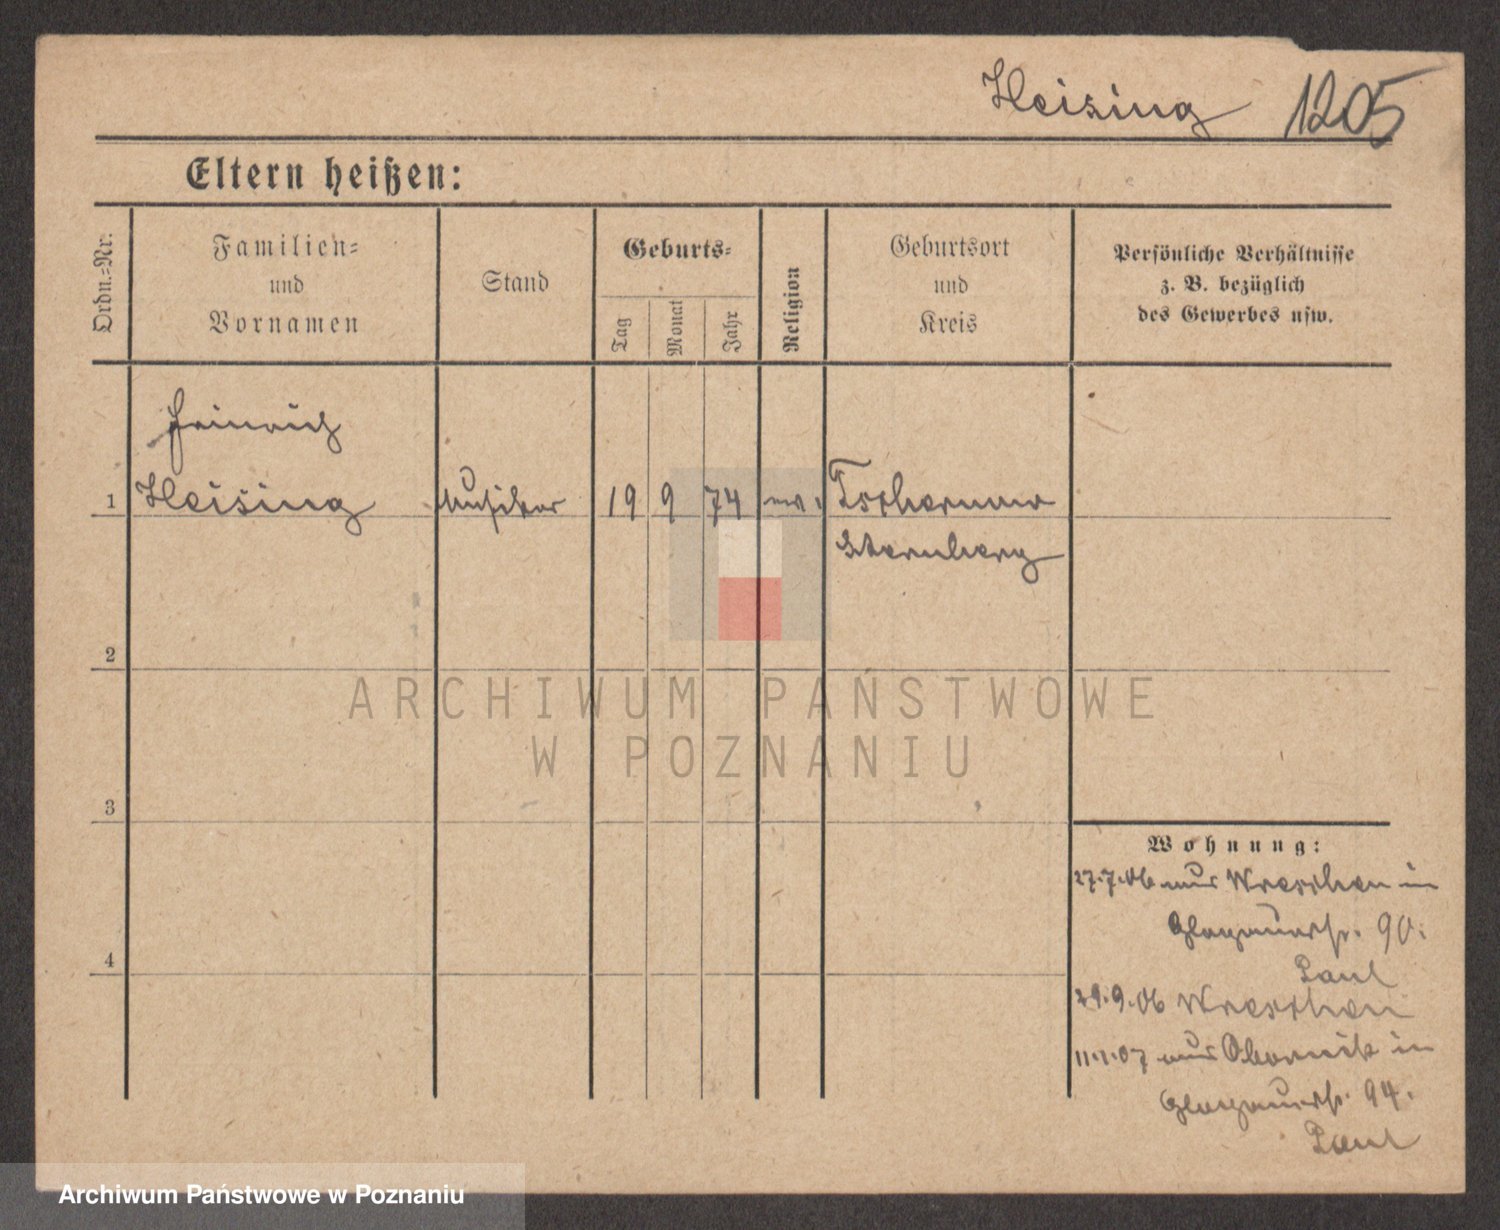 Heising 1205
Eltern heißen:
Ordn.-Nr.
Familien-
und
Vornamen
Stand
Geburts-
Tag
Monat
Jahr
Religion
Geburtsort
und
Kreis
Persönliche Verhältnisse
z. B. bezüglich
des Gewerbes usw.
Heinrich
1 Heising Musiker 19 9 74 ev. Tschernow
Sternberg
2
ARCHIWUM PAŃSTWOWE
W POZNANIU
3
4
Wohnung:
27.7.06 aus Wreschen in
Glogauerstr. 90.
Paul
29.9.06 Wreschen
11.1.07 aus Obornik in
Glogauerstr. 94.
Paul
Archiwum Państwowe w Poznaniu